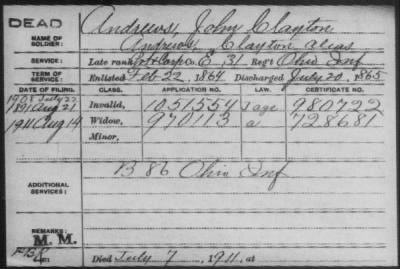 DEAD
Andrews, John Clayton
NAME OF SOLDIER:
Andrews, Clayton alias
SERVICE: Late rank Corp Co. E, 31 Reg't Ohio Inf
TERM OF SERVICE: Enlisted Feb 22, 1864 Discharged July 20, 1865
DATE OF FILING. CLASS. APPLICATION NO. LAW. CERTIFICATE NO.
1908 July 22
1891 Aug 21 Invalid, 1051554 age 980722
1911 Aug 14 Widow, 970113 a 728681
Minor,
B 86 Ohio Inf
ADDITIONAL SERVICES:
REMARKS:
M. M.
Died July 7, 1911, at